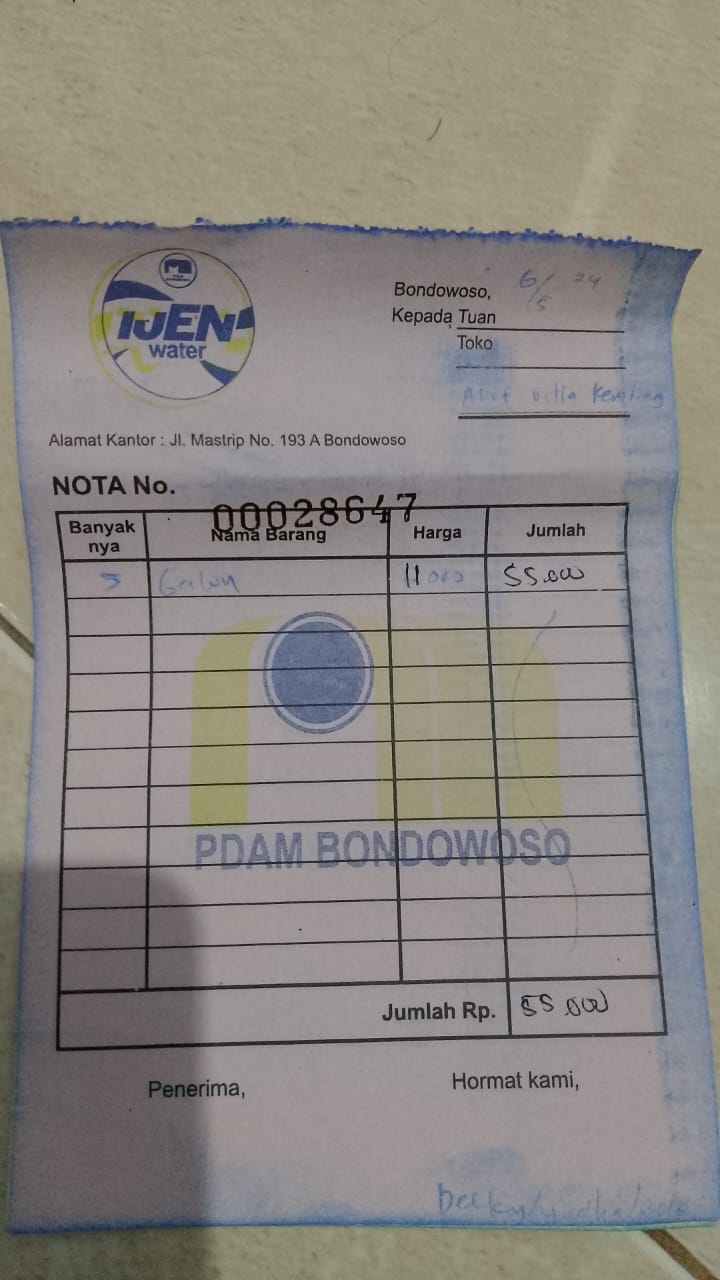 IJEN
water
Bondowoso, 6/5 24
Kepada Tuan
Toko
Arif Villa Kembang
Alamat Kantor : Jl. Mastrip No. 193 A Bondowoso
NOTA No.
00028647
Banyak nya Nama Barang Harga Jumlah
5 Galon 11000 55.000
PDAM BONDOWOSO
Jumlah Rp. 55.000
Penerima, Hormat kami,